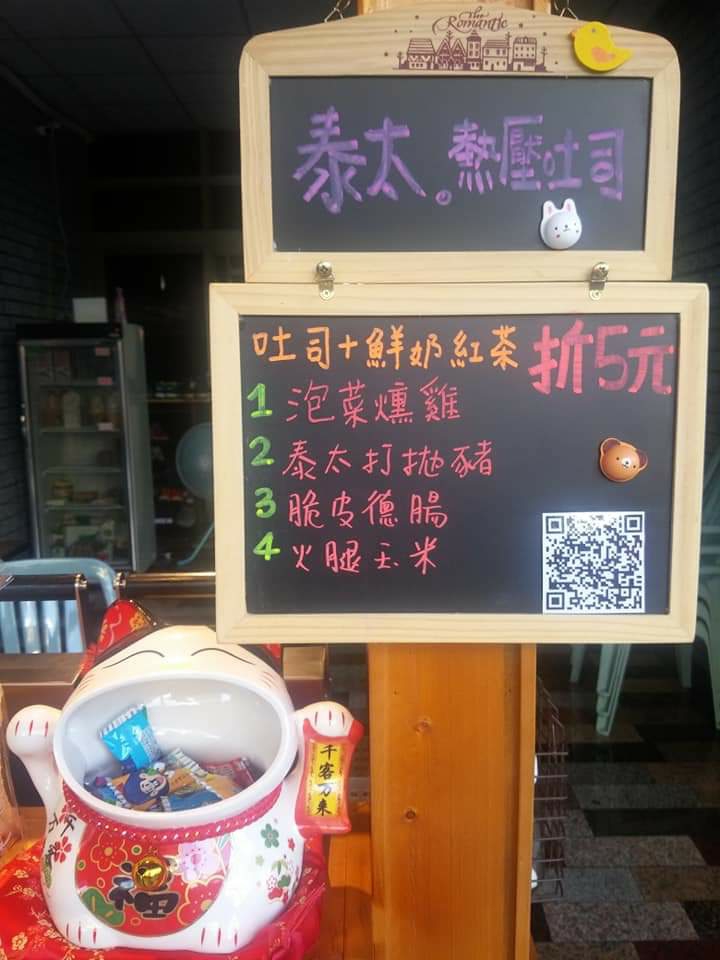 The Romantic
泰太。熱壓吐司
吐司+鮮奶紅茶 折5元
1 泡菜燻雞
2 泰太打拋豬
3 脆皮德腸
4 火腿玉米
千客万来
福